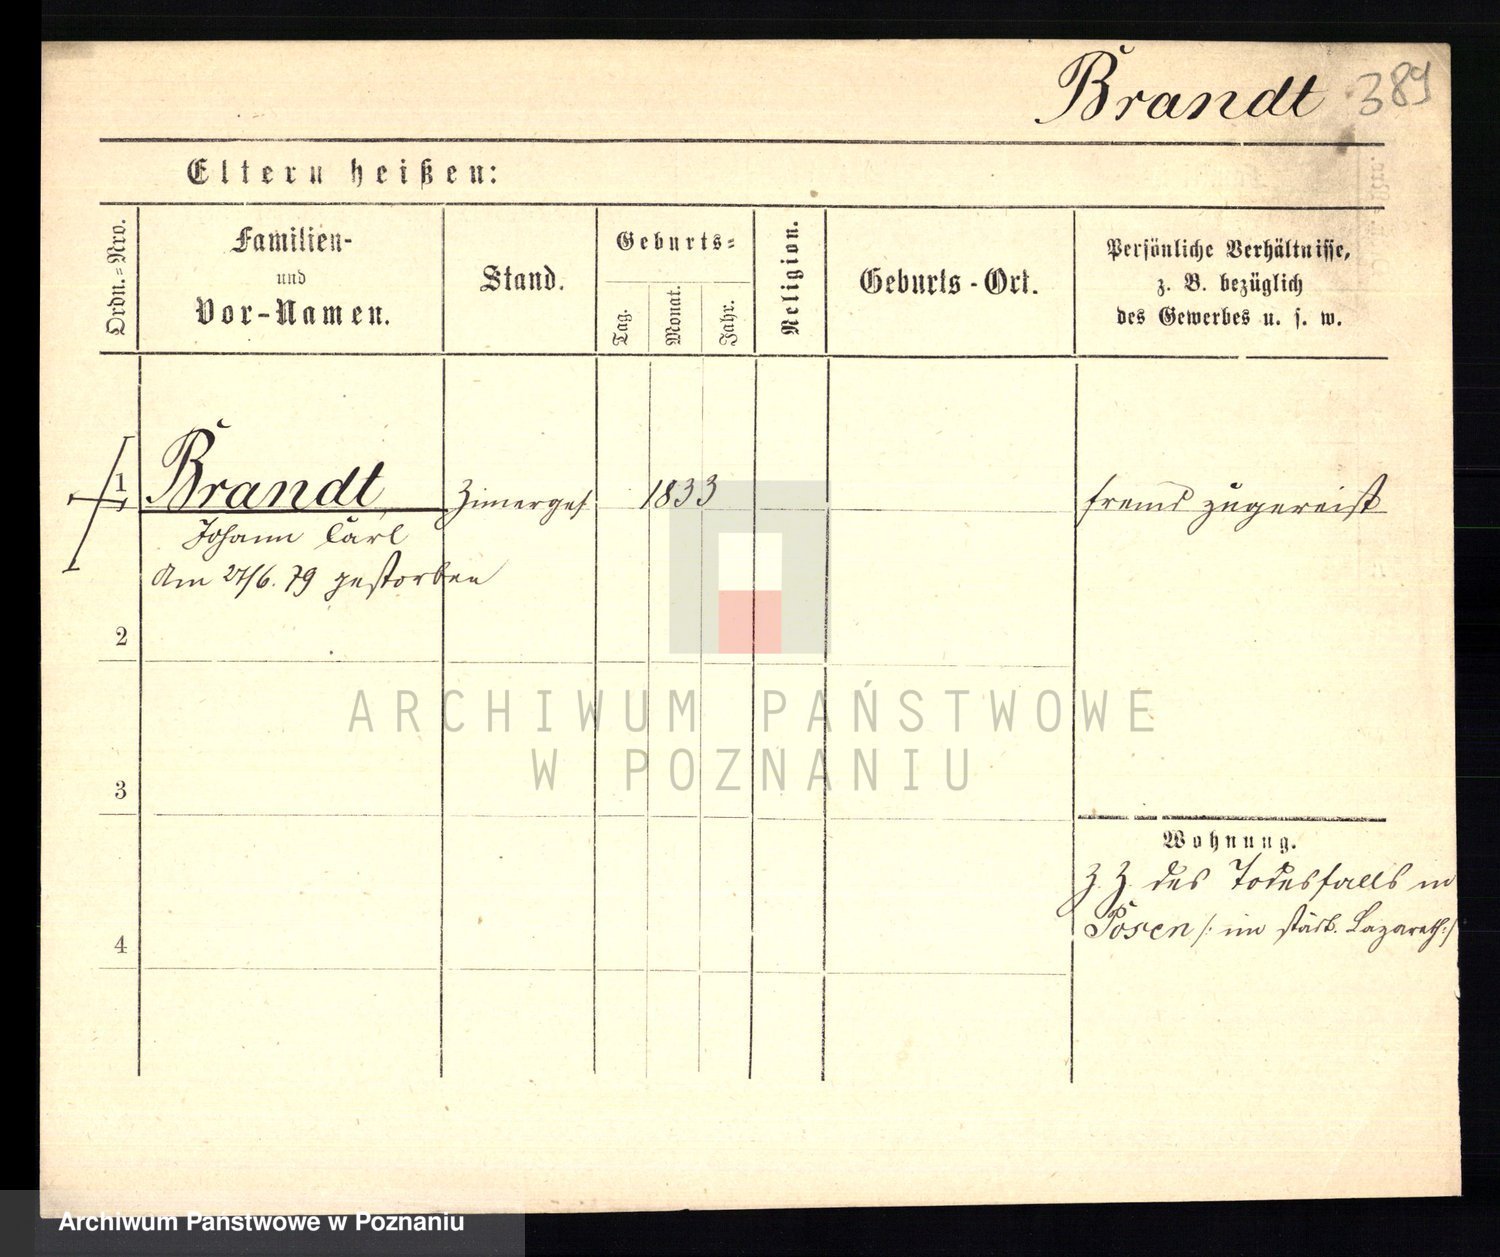 Brandt 389
Eltern heißen:
Ordn.=Nro.
Familien-
und
Vor-Namen.
Stand.
Geburts=
Tag.
Monat.
Jahr.
Religion.
Geburts-Ort.
Persönliche Verhältnisse,
z. B. bezüglich
des Gewerbes u. s. w.
1 Brandt Zimerges. 1833 fremd zugereist
Johann Carl
Am 27/6. 79 gestorben
2
3
4
Wohnung.
Z. Z. des Todesfalls in
Posen /: im städt. Lazareth :/
ARCHIWUM PAŃSTWOWE
W POZNANIU
Archiwum Państwowe w Poznaniu